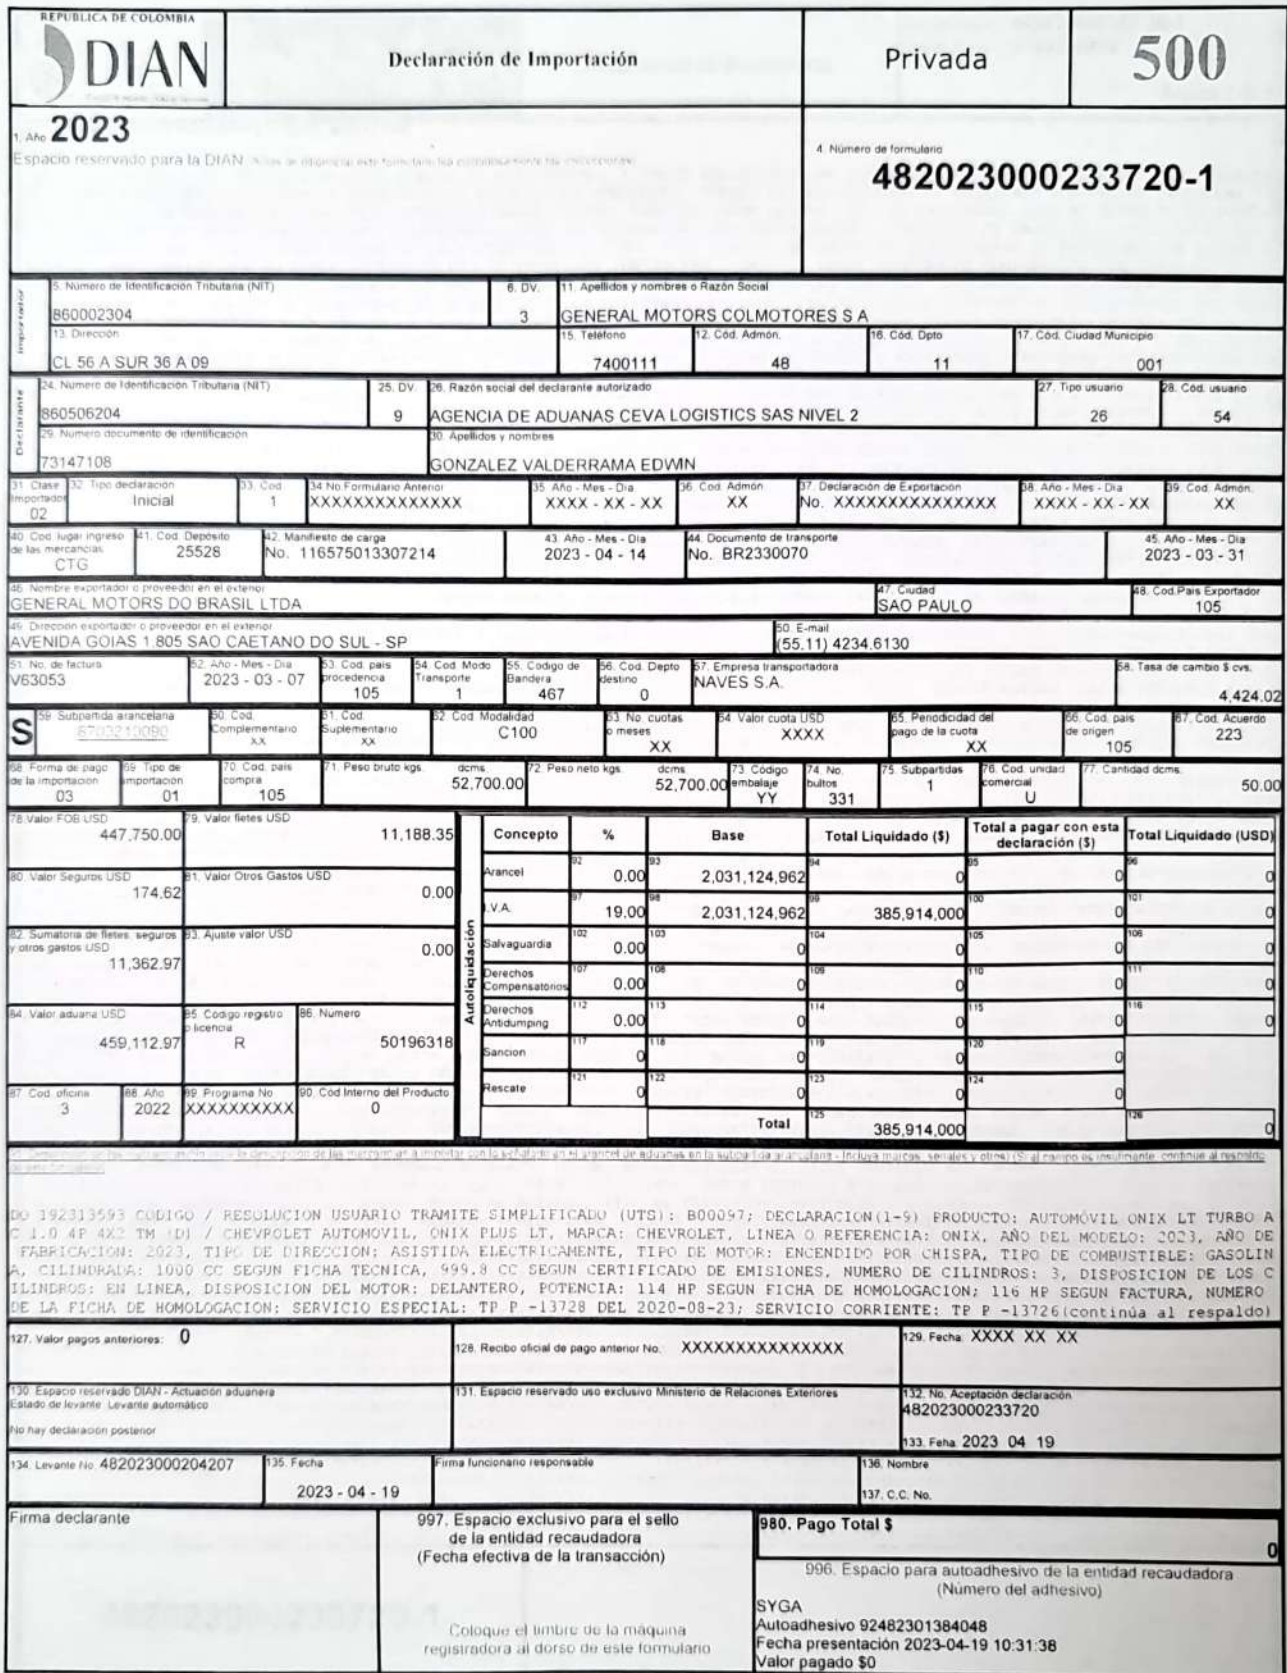 REPUBLICA DE COLOMBIA
DIAN
Declaración de Importación
Privada
500
1. Año 2023
Espacio reservado para la DIAN
4. Número de formulario
482023000233720-1
Importador
5. Número de Identificación Tributaria (NIT)
860002304
6. DV.
3
11. Apellidos y nombres o Razón Social
GENERAL MOTORS COLMOTORES S A
13. Dirección
CL 56 A SUR 36 A 09
15. Teléfono
7400111
12. Cód. Admón.
48
16. Cód. Dpto
11
17. Cód. Ciudad Municipio
001
Declarante
24. Número de Identificación Tributaria (NIT)
860506204
25. DV.
9
26. Razón social del declarante autorizado
AGENCIA DE ADUANAS CEVA LOGISTICS SAS NIVEL 2
27. Tipo usuario
26
28. Cód. usuario
54
29. Número documento de identificación
73147108
30. Apellidos y nombres
GONZALEZ VALDERRAMA EDWIN
31. Clase Importador
02
32. Tipo declaración
Inicial
33. Cod
1
34 No Formulario Anterior
XXXXXXXXXXXXX
35. Año - Mes - Dia
XXXX - XX - XX
36. Cod. Admón
XX
37. Declaración de Exportación
No. XXXXXXXXXXXXXX
38. Año - Mes - Dia
XXXX - XX - XX
39. Cod. Admón.
XX
40. Cod. lugar ingreso de las mercancias
CTG
41. Cod. Depósito
25528
42. Manifiesto de carga
No. 116575013307214
43. Año - Mes - Dia
2023 - 04 - 14
44. Documento de transporte
No. BR2330070
45. Año - Mes - Dia
2023 - 03 - 31
46. Nombre exportador o proveedor en el exterior
GENERAL MOTORS DO BRASIL LTDA
47. Ciudad
SAO PAULO
48. Cod.Pais Exportador
105
49. Dirección exportador o proveedor en el exterior
AVENIDA GOIAS 1.805 SAO CAETANO DO SUL - SP
50. E-mail
(55.11) 4234.6130
51. No. de factura
V63053
52. Año - Mes - Dia
2023 - 03 - 07
53. Cod. pais procedencia
105
54. Cod. Modo Transporte
1
55. Codigo de Bandera
467
56. Cod. Depto destino
0
57. Empresa transportadora
NAVES S.A.
58. Tasa de cambio $ cvs.
4,424.02
S
59. Subpartida arancelaria
8703210090
60. Cod. Complementario
XX
61. Cod. Suplementario
XX
62. Cod. Modalidad
C100
63. No. cuotas o meses
XX
64. Valor cuota USD
XXXX
65. Periodicidad del pago de la cuota
XX
66. Cod. pais de origen
105
67. Cod. Acuerdo
223
68. Forma de pago de la importación
03
69. Tipo de importación
01
70. Cod. pais compra
105
71. Peso bruto kgs. dcms.
52,700.00
72. Peso neto kgs. dcms.
52,700.00
73. Código embalaje
YY
74. No. bultos
331
75. Subpartidas
1
76. Cod. unidad comercial
U
77. Cantidad dcms.
50.00
78. Valor FOB USD
447,750.00
79. Valor fletes USD
11,188.35
80. Valor Seguros USD
174.62
81. Valor Otros Gastos USD
0.00
82. Sumatoria de fletes, seguros y otros gastos USD
11,362.97
83. Ajuste valor USD
0.00
84. Valor aduana USD
459,112.97
85. Código registro o licencia
R
86. Numero
50196318
87. Cod. oficina
3
88. Año
2022
89. Programa No
XXXXXXXXXX
90. Cód Interno del Producto
0
Autoliquidación
Concepto % Base Total Liquidado ($) Total a pagar con esta declaración ($) Total Liquidado (USD)
Arancel 92 0.00 93 2,031,124,962 94 0 95 0 96 0
I.V.A. 97 19.00 98 2,031,124,962 99 385,914,000 100 0 101 0
Salvaguardia 102 0.00 103 0 104 0 105 0 106 0
Derechos Compensatorios 107 0.00 108 0 109 0 110 0 111 0
Derechos Antidumping 112 0.00 113 0 114 0 115 0 116 0
Sancion 117 0 118 0 119 0 120 0
Rescate 121 0 122 0 123 0 124 0
Total 125 385,914,000 0 126 0
DO 192313593 CODIGO / RESOLUCION USUARIO TRAMITE SIMPLIFICADO (UTS): B00097; DECLARACION(1-9) PRODUCTO: AUTOMÓVIL ONIX LT TURBO A
C 1.0 4P 4X2 TM (D) / CHEVROLET AUTOMOVIL, ONIX PLUS LT, MARCA: CHEVROLET, LINEA O REFERENCIA: ONIX, AÑO DEL MODELO: 2023, AÑO DE
FABRICACION: 2023, TIPO DE DIRECCION: ASISTIDA ELECTRICAMENTE, TIPO DE MOTOR: ENCENDIDO POR CHISPA, TIPO DE COMBUSTIBLE: GASOLIN
A, CILINDRADA: 1000 CC SEGUN FICHA TECNICA, 999.8 CC SEGUN CERTIFICADO DE EMISIONES, NUMERO DE CILINDROS: 3, DISPOSICION DE LOS C
ILINDROS: EN LINEA, DISPOSICION DEL MOTOR: DELANTERO, POTENCIA: 114 HP SEGUN FICHA DE HOMOLOGACION; 116 HP SEGUN FACTURA, NUMERO
DE LA FICHA DE HOMOLOGACION: SERVICIO ESPECIAL: TP P -13728 DEL 2020-08-23; SERVICIO CORRIENTE: TP P -13726(continúa al respaldo)
127. Valor pagos anteriores: 0
128. Recibo oficial de pago anterior No. XXXXXXXXXXXXXXX
129. Fecha: XXXX XX XX
130. Espacio reservado DIAN - Actuación aduanera
Estado de levante Levante automático
No hay declaración posterior
131. Espacio reservado uso exclusivo Ministerio de Relaciones Exteriores
132. No. Aceptación declaración
482023000233720
133. Feha 2023 04 19
134. Levante No. 482023000204207
135. Fecha
2023 - 04 - 19
Firma funcionario responsable
136. Nombre
137. C.C. No.
Firma declarante
997. Espacio exclusivo para el sello
de la entidad recaudadora
(Fecha efectiva de la transacción)
Coloque el timbre de la máquina
registradora al dorso de este formulario
980. Pago Total $
0
996. Espacio para autoadhesivo de la entidad recaudadora
(Número del adhesivo)
SYGA
Autoadhesivo 92482301384048
Fecha presentación 2023-04-19 10:31:38
Valor pagado $0